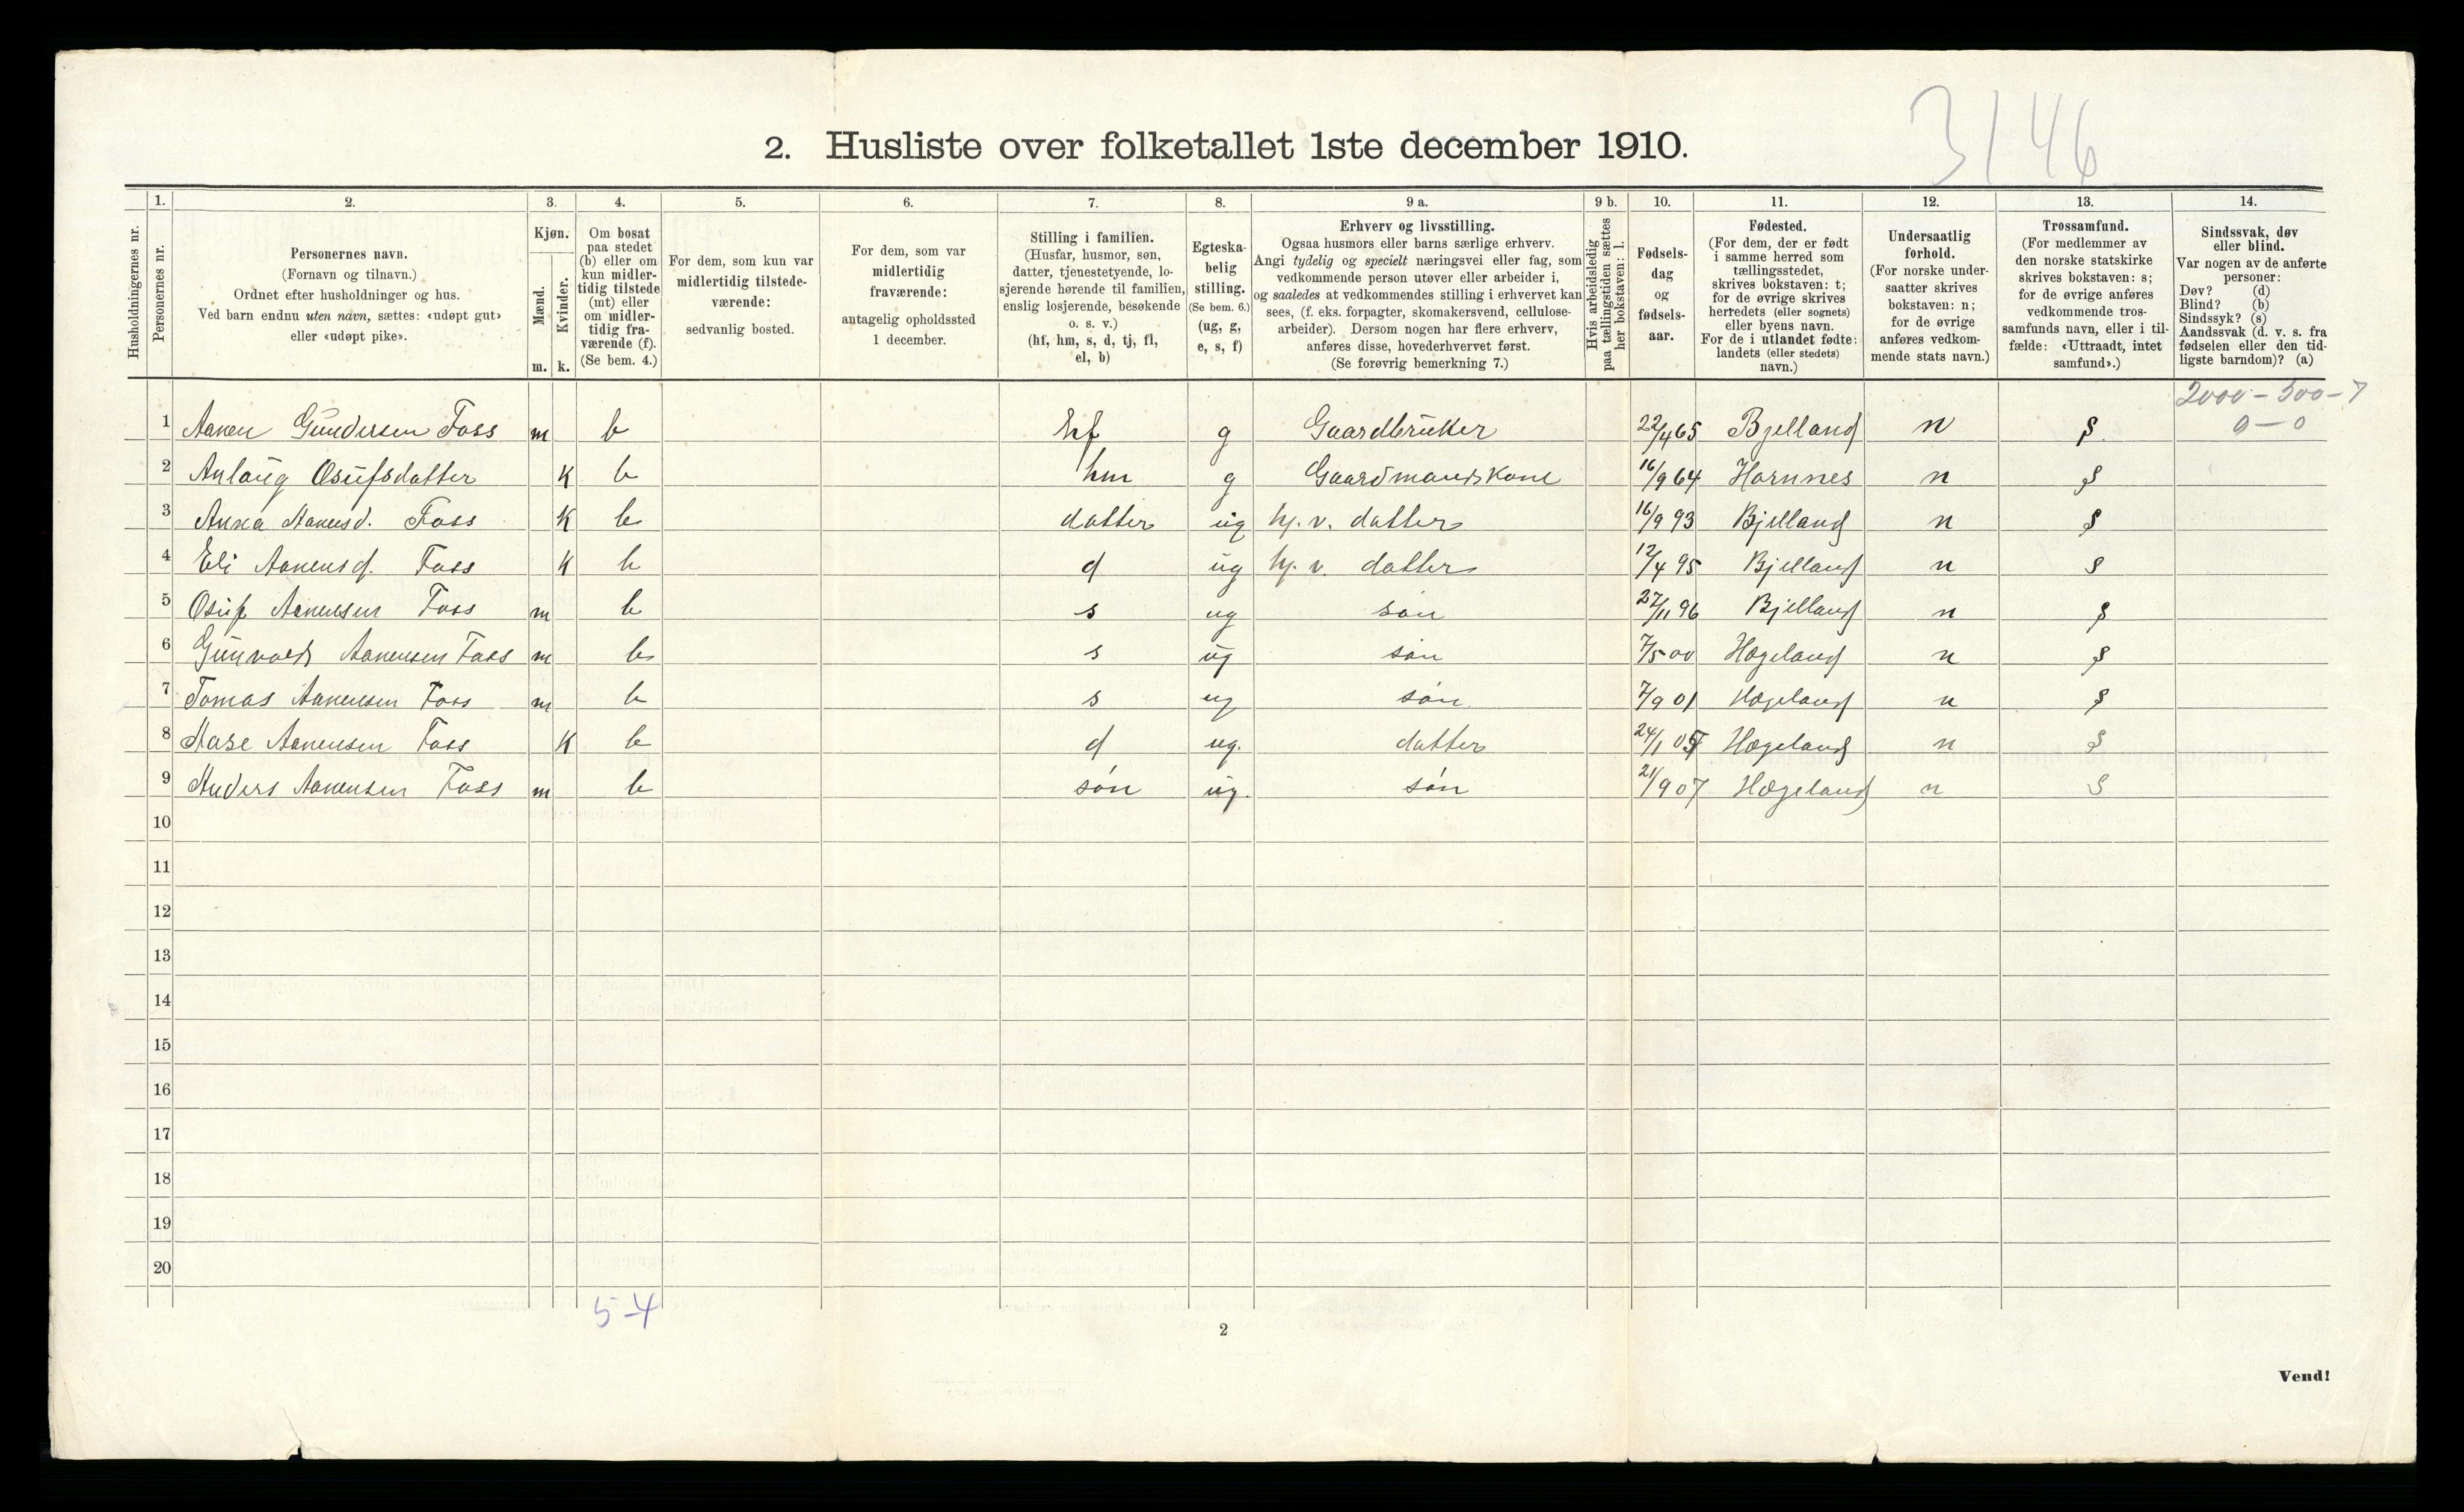 3146
2. Husliste over folketallet 1ste december 1910.
Husholdningernes nr.
1. Personernes nr.
2. Personernes navn.
(Fornavn og tilnavn.)
Ordnet efter husholdninger og hus.
Ved barn endnu uten navn, sættes: «udøpt gut»
eller «udøpt pike».
3. Kjøn.
Mænd. m.
Kvinder. k.
4. Om bosat
paa stedet
(b) eller om
kun midler-
tidig tilstede
(mt) eller
om midler-
tidig fra-
værende (f).
(Se bem. 4.)
5. For dem, som kun var
midlertidig tilstede-
værende:
sedvanlig bosted.
6. For dem, som var
midlertidig
fraværende:
antagelig opholdssted
1 december.
7. Stilling i familien.
(Husfar, husmor, søn,
datter, tjenestetyende, lo-
sjerende hørende til familien,
enslig losjerende, besøkende
o. s. v.)
(hf, hm, s, d, tj, fl,
el, b)
8. Egteska-
belig
stilling.
(Se bem. 6.)
(ug, g,
e, s, f)
9 a. Erhverv og livsstilling.
Ogsaa husmors eller barns særlige erhverv.
Angi tydelig og specielt næringsvei eller fag, som
vedkommende person utøver eller arbeider i,
og saaledes at vedkommendes stilling i erhvervet kan
sees, (f. eks. forpagter, skomakersvend, cellulose-
arbeider). Dersom nogen har flere erhverv,
anføres disse, hovederhvervet først.
(Se forøvrig bemerkning 7.)
9 b. Hvis arbeidsledig
paa tællingstiden sættes
her bokstaven: l.
10. Fødsels-
dag
og
fødsels-
aar.
11. Fødested.
(For dem, der er født
i samme herred som
tællingsstedet,
skrives bokstaven: t;
for de øvrige skrives
herredets (eller sognets)
eller byens navn.
For de i utlandet fødte:
landets (eller stedets)
navn.)
12. Undersaatlig
forhold.
(For norske under-
saatter skrives
bokstaven: n;
for de øvrige
anføres vedkom-
mende stats navn.)
13. Trossamfund.
(For medlemmer av
den norske statskirke
skrives bokstaven: s;
for de øvrige anføres
vedkommende tros-
samfunds navn, eller i til-
fælde: «Uttraadt, intet
samfund».)
14. Sindssvak, døv
eller blind.
Var nogen av de anførte
personer:
Døv? (d)
Blind? (b)
Sindssyk? (s)
Aandssvak (d. v. s. fra
fødselen eller den tid-
ligste barndom)? (a)
2000 - 500 - 7
0 - 0
1 Aanen Gundersen Foss m b hf g Gaardbruker 22/4 65 Bjelland n s
2 Anlaug Osufsdatter K b hm g Gaardmandskone 16/9 64 Hornnes n s
3 Anna Aanensd. Foss K b datter ug hj. v. datter 16/9 93 Bjelland n s
4 Eli Aanensd. Foss K b d ug hj. v. datter 12/4 95 Bjelland n s
5 Osuf Aanensen Foss m b s ug søn 27/11 96 Bjelland n s
6 Gunvald Aanensen Foss m b s ug søn 7/5 00 Hægeland n s
7 Tomas Aanensen Foss m b s ug søn 7/9 01 Hægeland n s
8 Aase Aanensen Foss K b d ug. datter 24/1 05 Hægeland n s
9 Anders Aanensen Foss m b søn ug. søn 21/9 07 Hægeland n s
10
11
12
13
14
15
16
17
18
19
20
5-4
2
Vend!